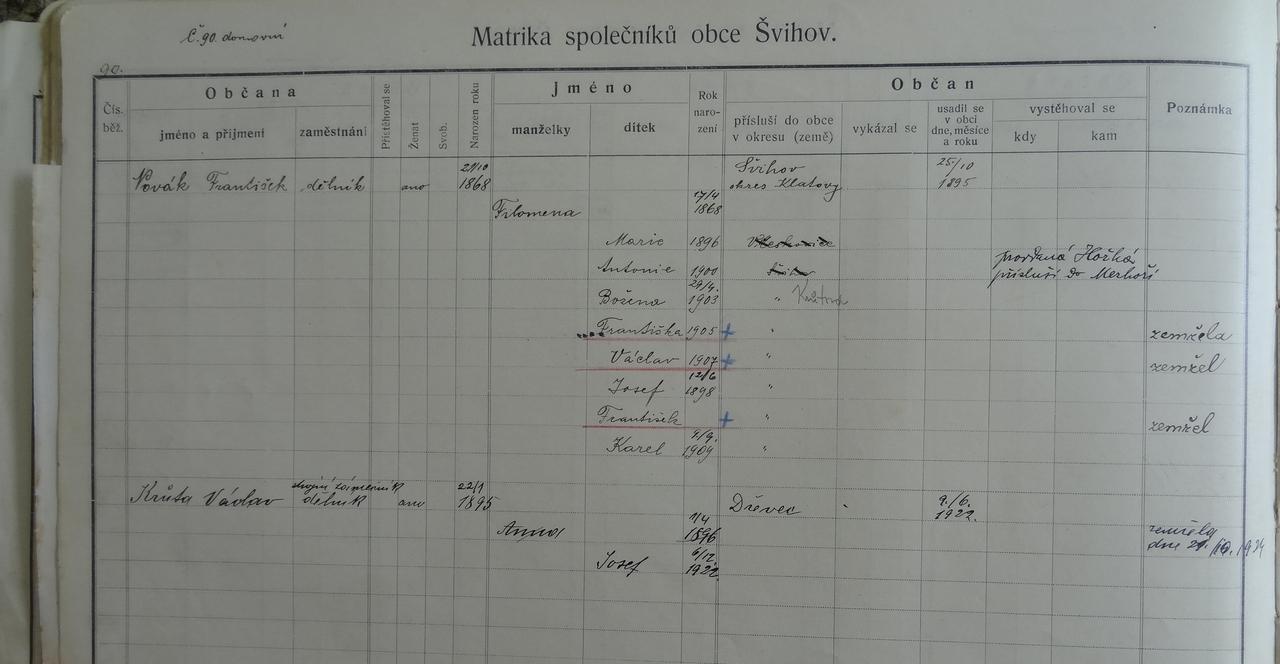 Č. 90. domovní
Matrika společníků obce Švihov.
90.
Čís. běž.
Občana
jméno a příjmení
zaměstnání
Přistěhoval se
Ženat
Svob.
Narozen roku
Jméno
manželky
dítek
Rok naro- zení
Občan
přísluší do obce v okresu (země)
vykázal se
usadil se v obci dne, měsíce a roku
vystěhoval se
kdy
kam
Poznámka
Novák František dělník ano 1868 Švihov okres Klatovy 25/10 1895
Filomena 17/4 1868
Marie 1896
Antonie 1900
přísluší do
Božena 29/4. 1903 "
Františka 1905 + " zemřela
Václav 1907 + " zemřel
Josef 12/6 1898 "
František + " zemřel
Karel 9/9. 1909 "
Krůta Václav dělník ano 22/1 1895 Dřevec 9./6. 1922.
Anna 1/4 1896 zemřela dne
Josef 6/12. 1922